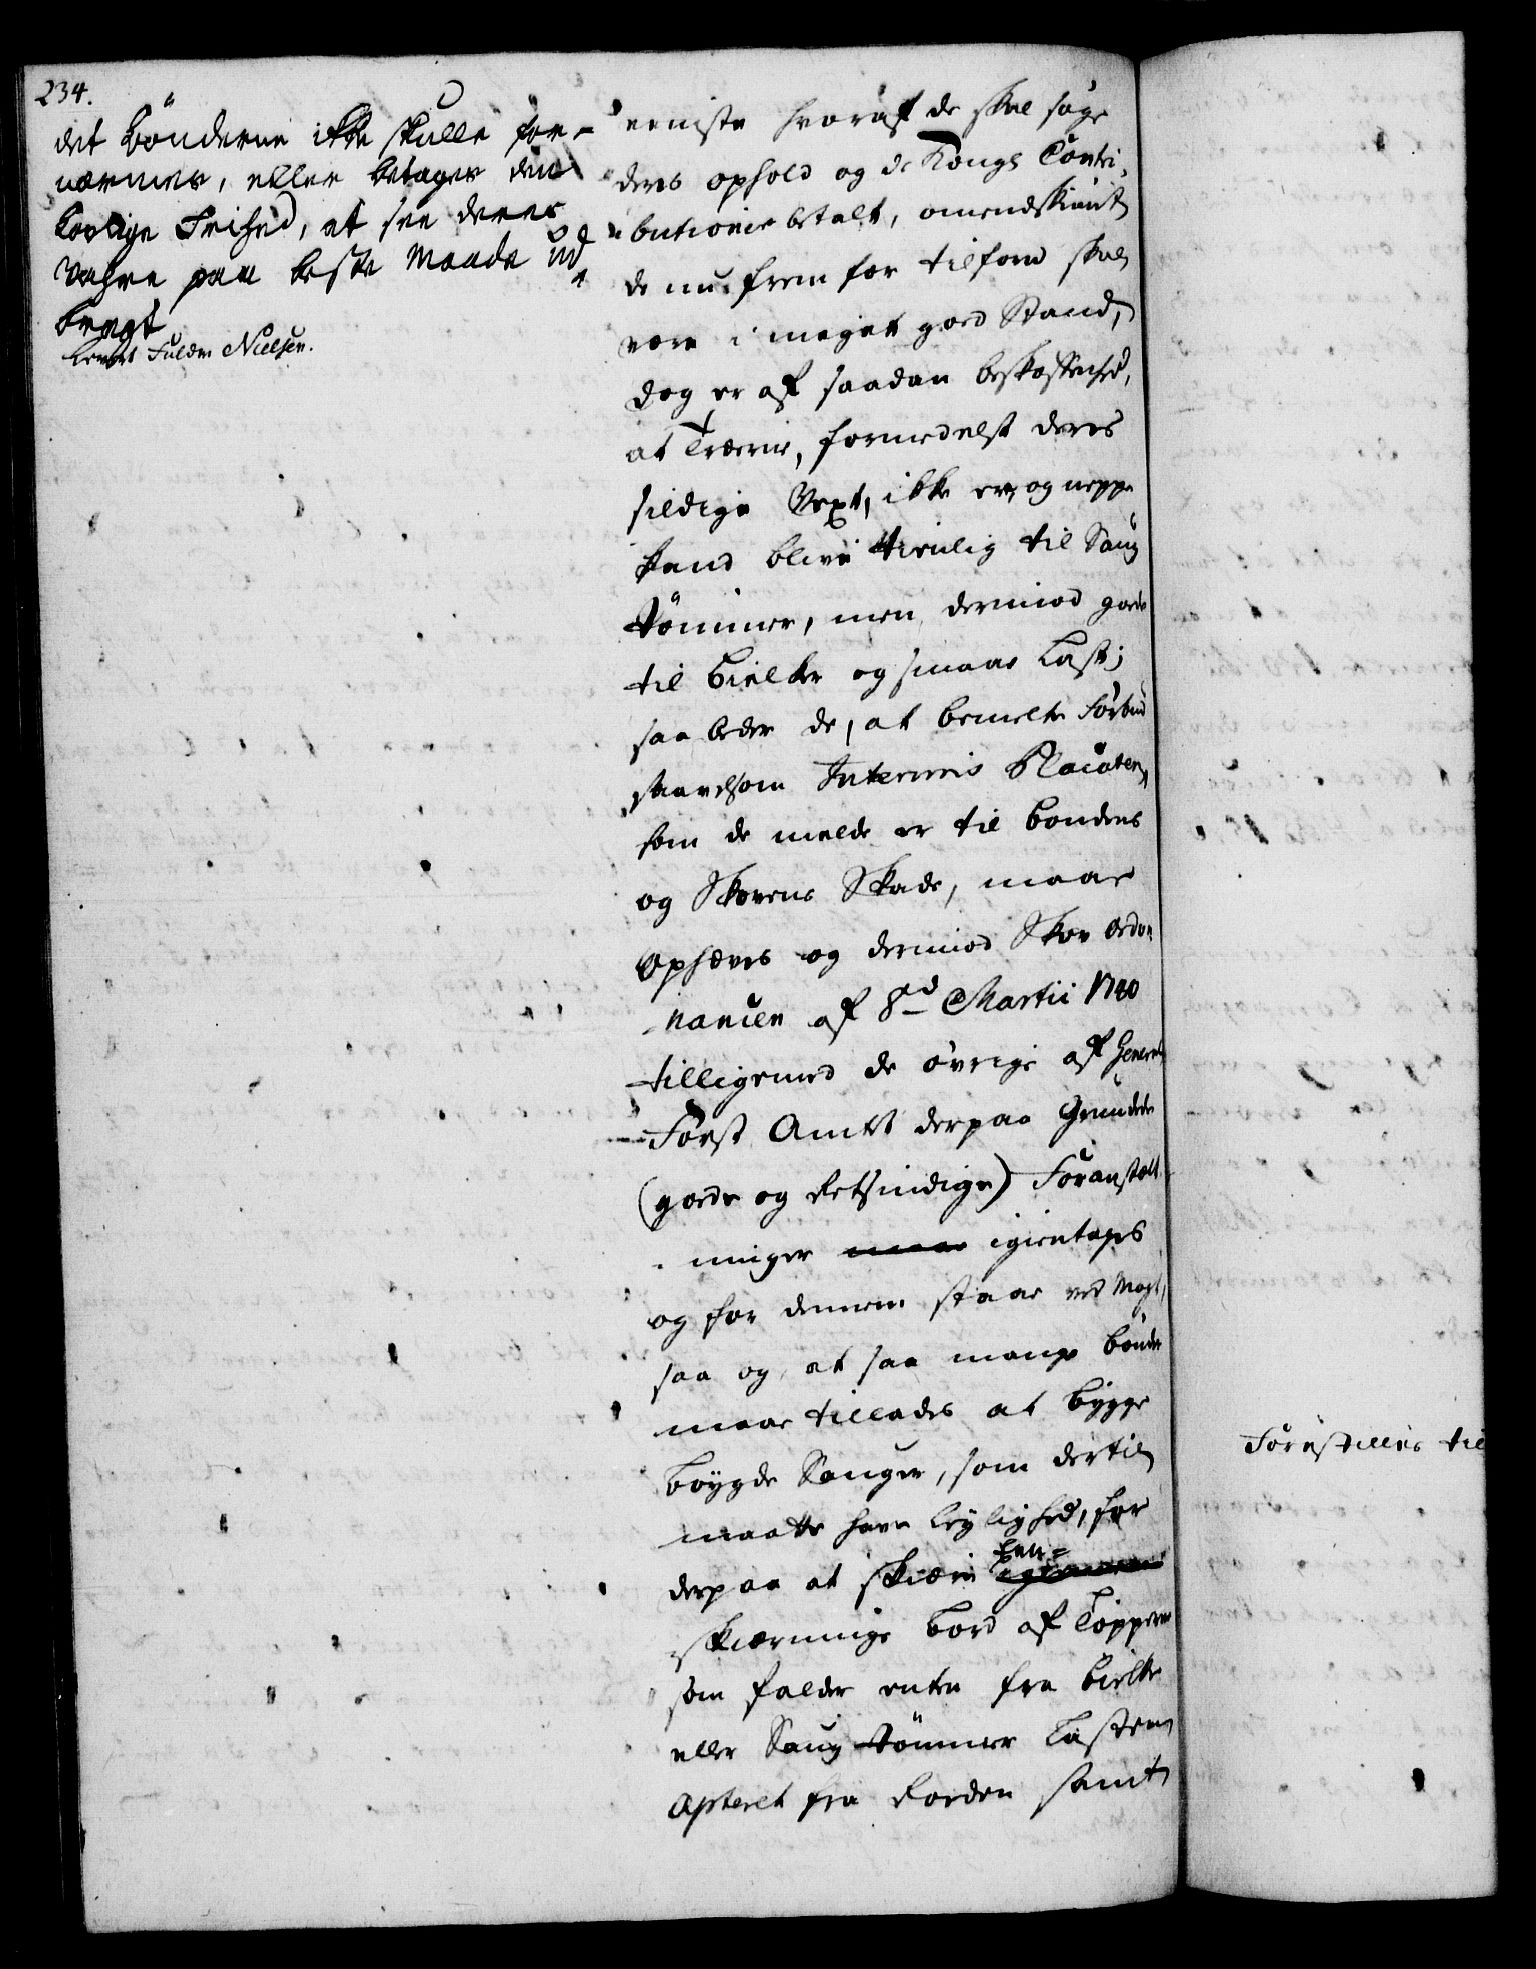 234.
det Bönderne ikke skulle for-
nærmes, eller betages den
Lovlige Frihed, at see deres
Vahre paa beste Maade ud
bragt
Levert Fuldm Nielsen.
eeniste hvoraf de skal söge
deres ophold og de Kongl Contri,
butioner betalt, omendskiönt
de nu frem for tilforn skal
være i meget goed Stand,
dog er af saadan beskaffenhed,
at Træerne, formedelst deres
sildige Vext, ikke er, og neppe
kand blive tienlig til Saug
Tömmer, men derimod gode
til Bielker og smaae Last;
saa beder de, at bemelte Forbud
saavelsom Interims Placaten,
som de melde er til Bondens
og Skovens Skade, maae
Ophæves og derimod Skov Ordo-
nancen af 8d Martii 1740
tilligemed de övrige af General
Forst Amtet derpaa Grundede
(goede og Retsindige) Foranstalt
ninger igientages
og for dennem staae ved Magt,
saa og, at saa mange Bönder
maae tillades at bygge
Böygde Sauger, som dertil
maatte have Leylighed, for
derpaa at skiære Een-
skiærninge Bord af Toppene
som falder enten fra Bielke
eller Saug Tömmer Lasten
Apteret fra Roeden samt
Forestilles til